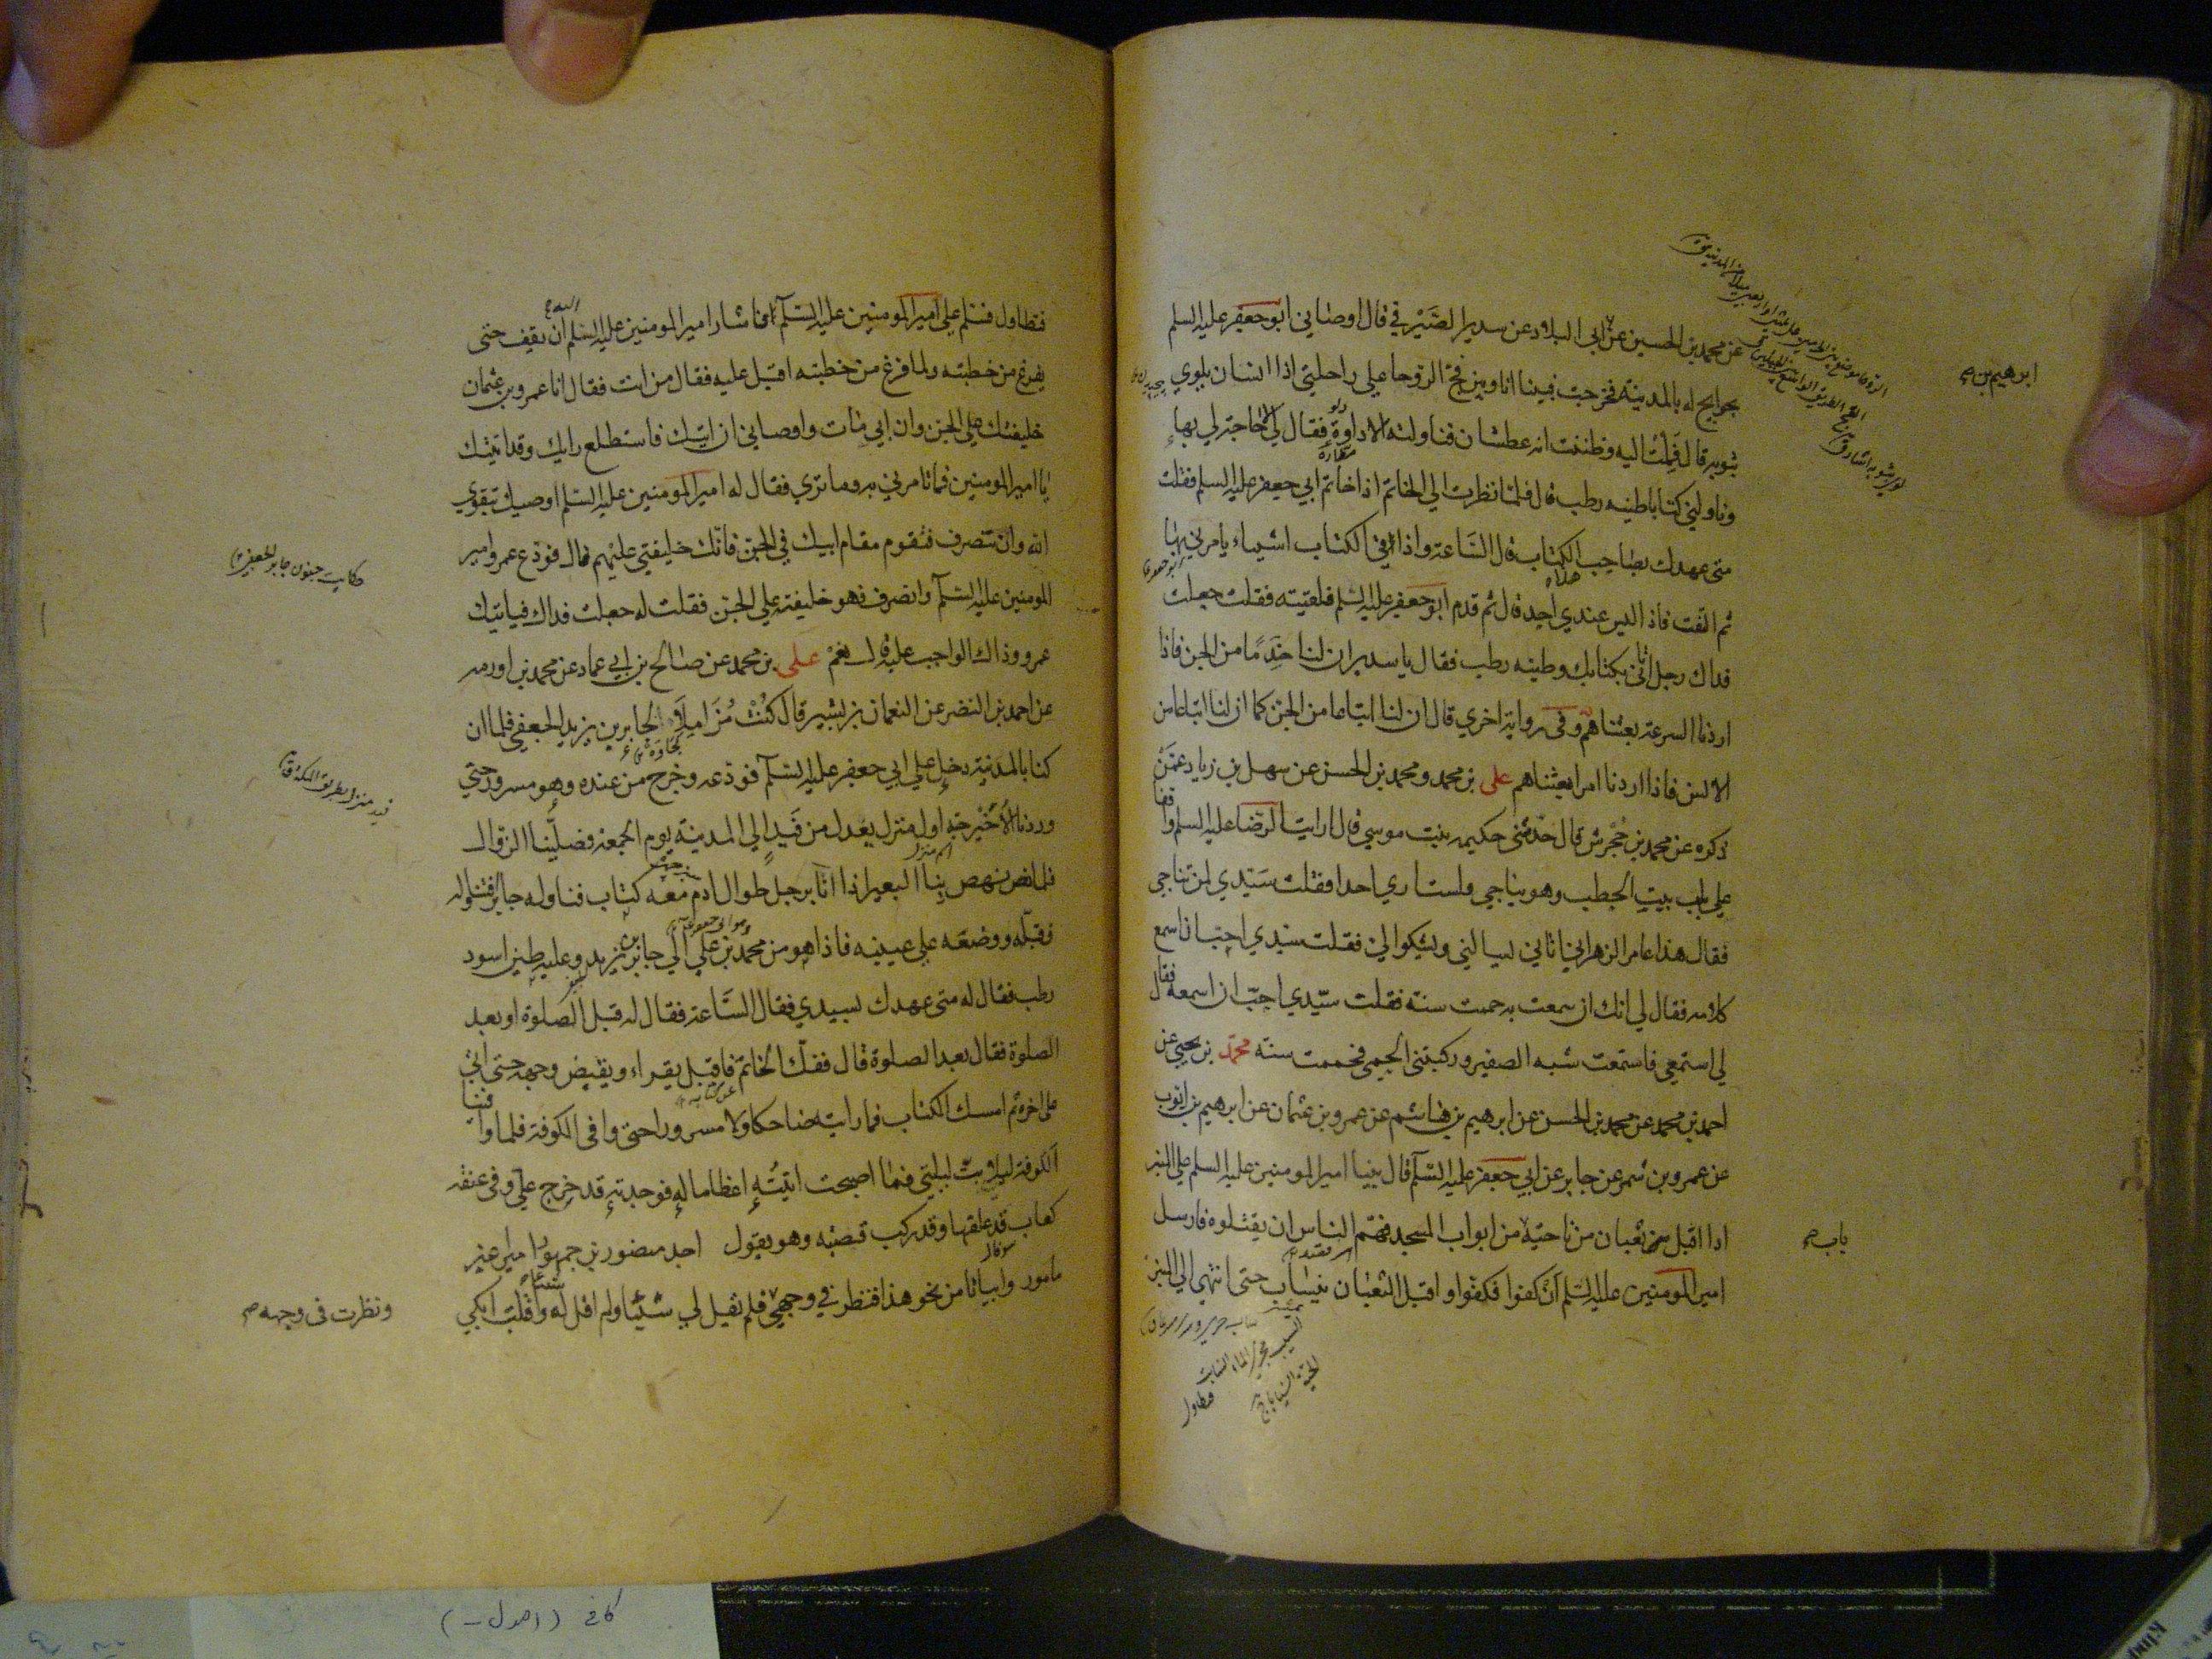 عن محمد بن الحسين عن ابي البلاد عن سدير الصيرفي قال اوصاني ابو جعفر عليه السلم
ابرهيم بن صح
بحوايج له بالمدينة فخرجت فبينا انا وبين فخ الروحا على راحلتي اذا انسان يلوي
بثوبه قال فملت اليه وظننت انه عطشان فناولته الاداوة فقال لي لا حاجة لي بها
وناولني كتابا طينه رطب قال فلما نظرت الي الخاتم اذا خاتم ابي جعفر عليه السلم فقلت
متى عهدك بصاحب الكتاب قال الساعة واذا في الكتاب اشياء يامرني بها
ثم التفت فاذا ليس عندي احد قال ثم قدم ابو جعفر عليه السلم فلقيته فقلت جعلت
فداك رجل اتاني بكتابك وطينه رطب فقال يا سدير ان لنا خدما من الجن فاذا
اردنا السرعة بعثناهم وفي رواية اخري قال ان لنا اتباعا من الجن كما ان لنا اتباعا من
الانس فاذا اردنا امرا بعثناهم علي بن محمد ومحمد بن الحسن عن سهل بن زياد عمن
ذكره عن محمد بن جحرش قال حدثتني حكيمه بنت موسي قال رايت الرضا عليه السلم واقفا
علي باب بيت الحطب وهو يناجي ولست اري احدا فقلت سيدي لمن تناجي
فقال هذا عامر الزهرايي اتاني يسالني ويشكوا الي فقلت سيدي احب ان اسمع
كلامه فقال لي انك ان سمعت به حممت سنة فقلت سيدي احب ان اسمعه فقال
لي استمعي فاستمعت شبه الصفير وركبتني الحمي فحممت سنة محمد بن يحيي عن
احمد بن محمد عن محمد بن الحسن عن ابرهيم بن هاشم عن عمرو بن عثمان عن ابرهيم بن ايوب
عن عمرو بن شمر عن جابر عن ابي جعفر عليه السلم قال بينا امير المومنين عليه السلم علي المنبر
اذا اقبل ثعبان من ناحية من ابواب المسجد فهم الناس ان يقتلوه فارسل
باب صح
امير المومنين عليه السلم ان كفوا فكفوا واقبل الثعبان ينساب حتى انتهي الي المنبر
فتطاول
فتطاول فسلم علي امير المومنين عليه السلم فاشار امير المومنين عليه السلم ان يقف حتى
يفرغ من خطبته ولما فرغ من خطبته اقبل عليه فقال من انت فقال انا عمرو بن عثمان
خليفتك علي الجن وان ابي مات واوصاني ان اتيك فاستطلع رايك وقد اتيتك
يا امير المومنين فما تامرني به وما تري فقال له امير المومنين عليه السلم اوصيك بتقوي
الله وان تنصرف فتقوم مقام ابيك في الجن فانك خليفتي عليهم قال فودع عمرو امير
حكايت جنون جابر الجعفي
المومنين عليه السلم وانصرف فهو خليفته علي الجن فقلت له جعلت فداك فياتيك
عمرو وذاك الواجب عليه قال نعم علي بن محمد عن صالح بن ابي حماد عن محمد بن اورمه
عن احمد بن النضر عن النعمان بن بشير قال كنت مزاملا لجابر بن يزيد الجعفي فلما ان
كنا بالمدينة دخل علي ابي جعفر عليه السلم فودعه وخرج من عنده وهو مسرور حتي
فيد منزل بطريق المكة ق
وردنا الاخيرجة اول منزل يعدل من فيد الي المدينة يوم الجمعة فصلينا الزوال
فلما نهض بنا البعير اذا انا برجل طوال ادم معه كتاب فناوله جابر فتناوله
فقبله ووضعه علي عينيه فاذا هو من محمد بن علي الي جابر بن يزيد وعليه طين اسود
رطب فقال له متي عهدك بسيدي فقال الساعة فقال له قبل الصلوة او بعد
الصلوة فقال بعد الصلوة قال ففك الخاتم فاقبل يقراه ويقبض وجهه حتى اتي
علي اخره ثم امسك الكتاب فما رايته ضاحكا ولا مسرورا حتى وافي الكوفة فلما وافينا
الكوفة ليلا بت ليلتي فلما اصبحت اتيته اعظاما له فوجدته قد خرج علي وفي عنقه
كعاب قد علقها وقد ركب قصبة وهو يقول اجد منصور بن جمهور اميرا غير
مامور وابياتا من نحو هذا فنظر في وجهي فلم يقل لي شيئا ولم اقل له واقبلت ابكي
ونظرت في وجهه صح
كافي (اصول -)